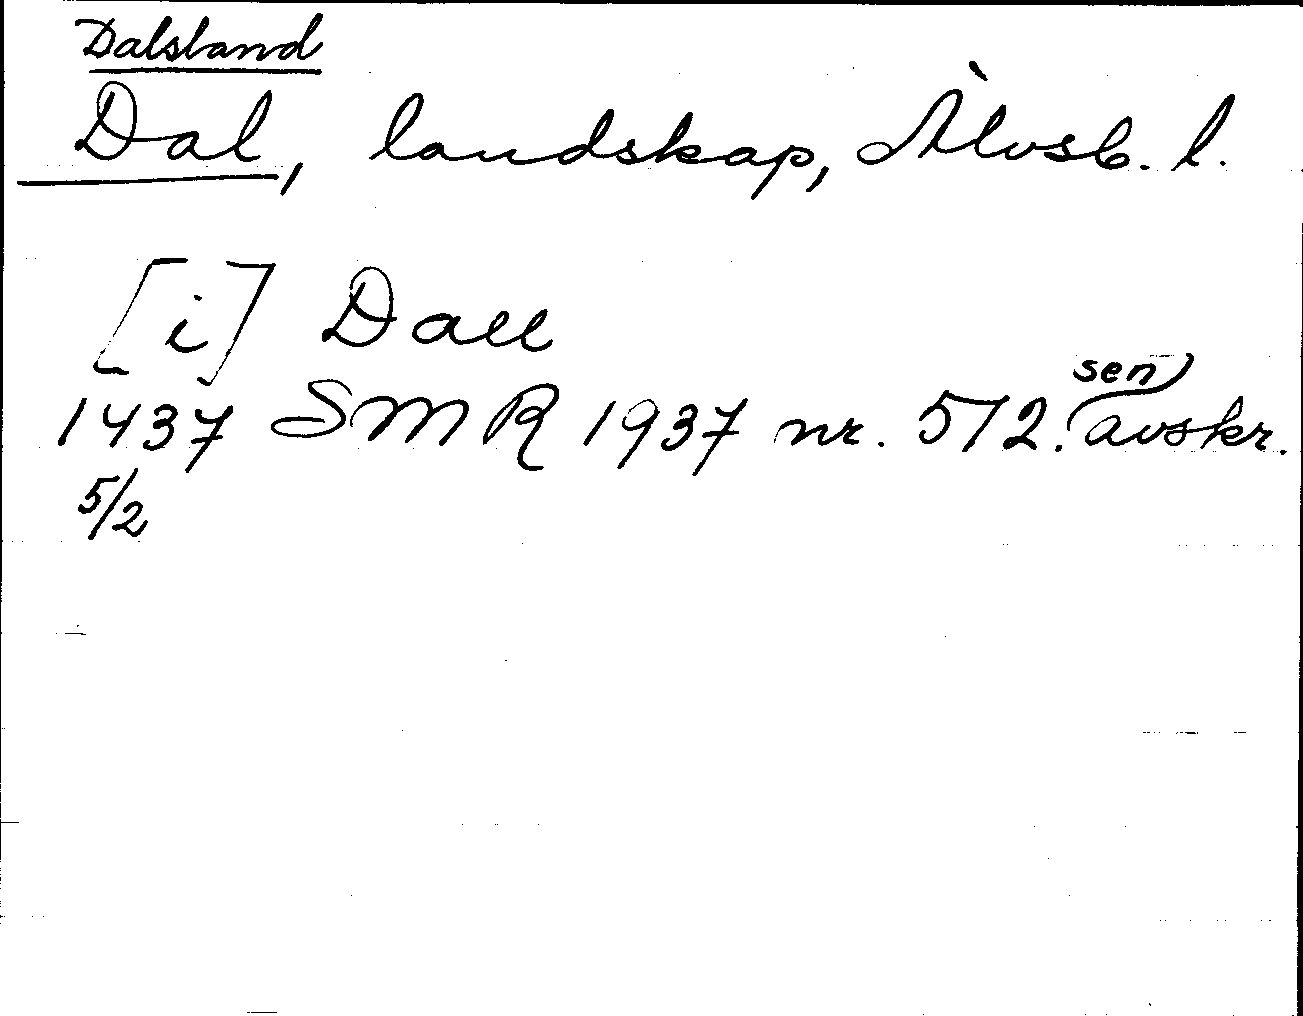 Dalsland
Dal, landskap, Älvsb. l.
[i] Dall
1437 SMR 1937 nr. 572. sen avskr.
5/2